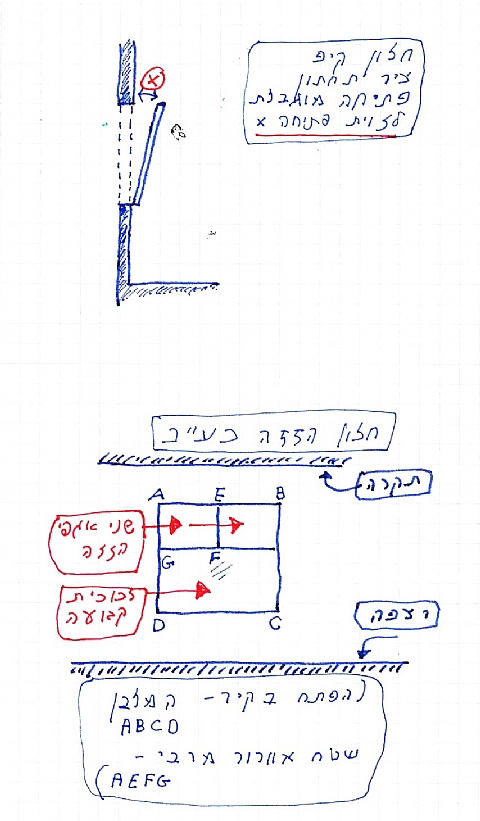 חלון קיפ
ציר תחתון
פתיחה מוגבלת
לזוית פתוחה x
x
חלון הזזה כע"ב
תקרה
A E B
שני אגפי
הזזה
G F
זכוכית
קבועה
D C
רצפה
(הפתח בקיר - המלבן
ABCD
שטח אוורור מרבי -
AEFG)